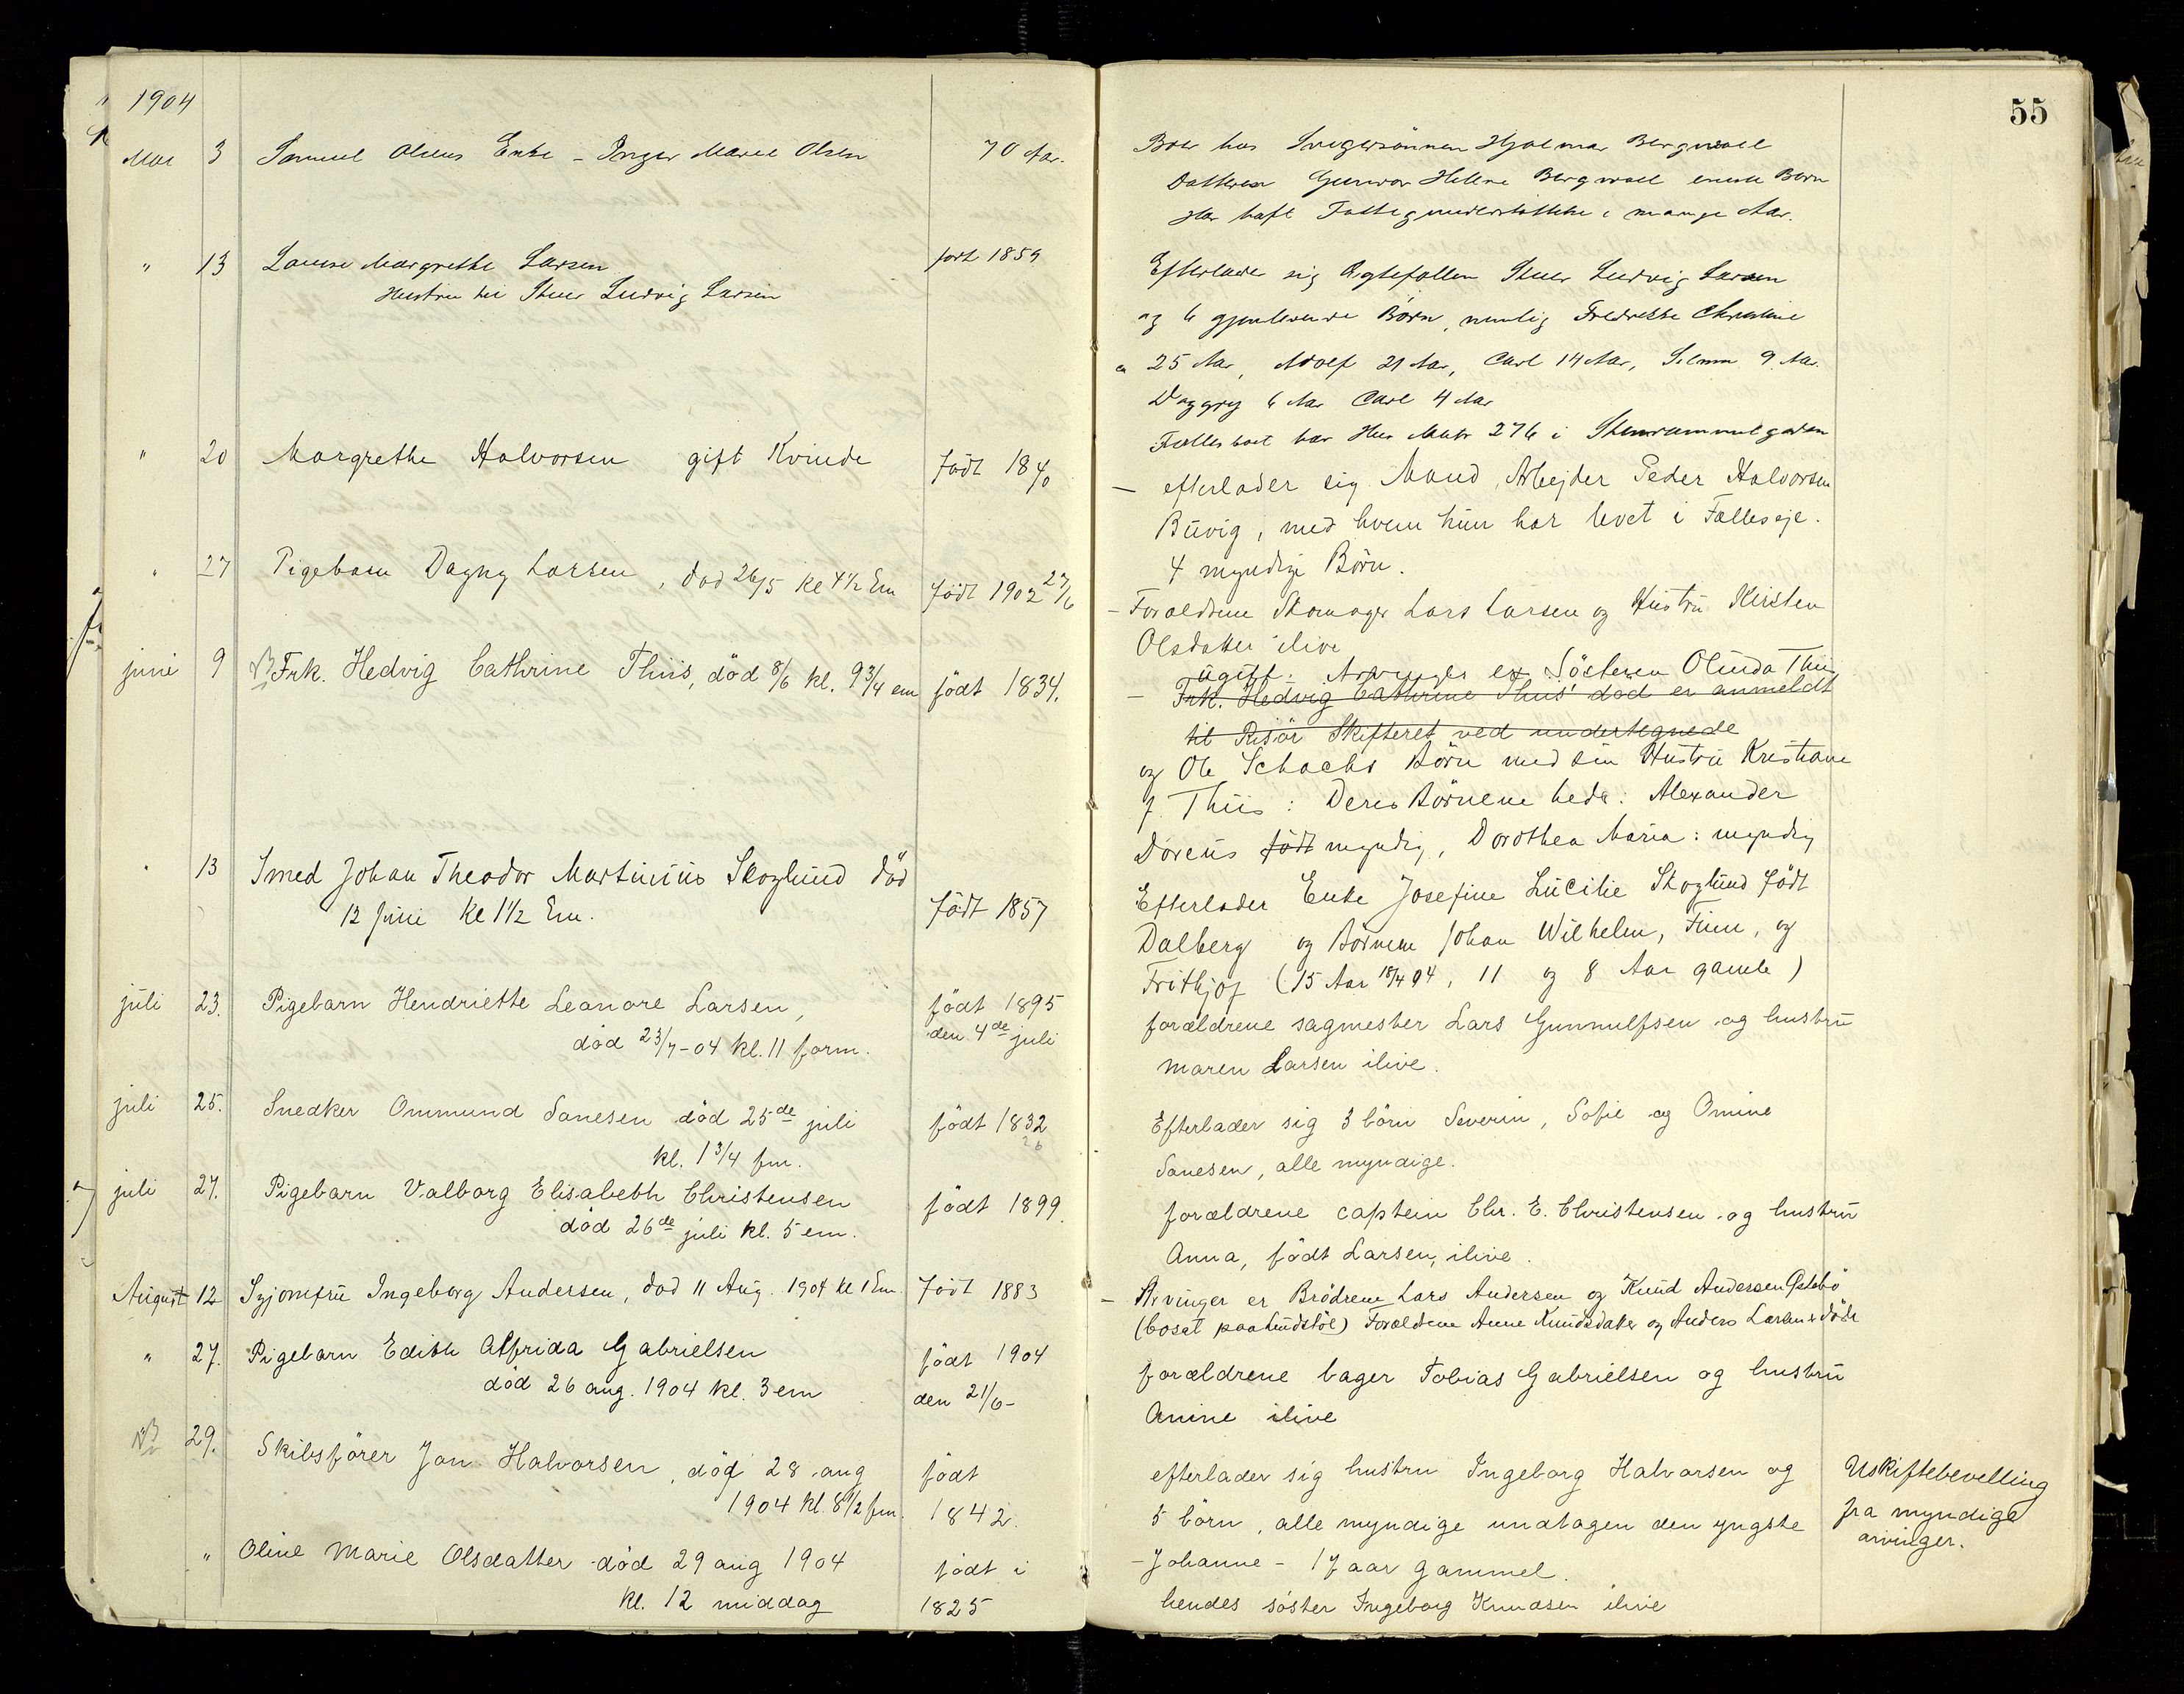 1904
55
Mai 3 Samuel Olsens Enke – Inger Marie Olsen 70 Aar.
Boer hos Svigersönnen Hjalmar Bergwall
Datteren Gunvor Helene Bergwall eneste Barn
Har haft Fattigunderstöttelse i mange Aar.
" 13 Louise Margrethe Larsen født 1859
Hustru til Stuer Ludvig Larsen
Efterlader sig Ægtefællen Stuer Ludvig Larsen
og 6 gjenlevende Börn, nemlig Fredrikke Christine
25 Aar, Adolf 21 Aar, Carl 14 Aar, 9 Aar.
Daggry 6 Aar Carl 4 Aar
Fællesboet har Hus Matr 276 i
" 20 Margrethe Halvorsen gift Kvinde födt 1840
– efterlader sig Mand, Arbejder Peder Halvorsen
Buvig, med hvem hun har levet i Fælleseje.
4 myndige Börn.
" 27 Pigebarn Dagny Larsen, död 26/5 kl 4 1/2 Em födt 1902 27/6
– Forældrene Skomager Lars Larsen og Hustru Kirsten
Olsdatter ilive
juni 9 NB Frk. Hedvig Cathrine Thiis, död 8/6 kl. 9 3/4 em födt 1834.
ugift. Arvinger er Söstren Olinda Thiis
– Frk. Hedvig Cathrine Thiis' död er anmeldt
til Risör Skifteret ved undertegnede
og Ole Schachs Börn med sin Hustru Kristiane
f. Thiis: Deres Börnene hede: Alexander
Doreus födt myndig, Dorothea Maria: myndig
" 13 Smed Johan Theodor Martinius Skoglund död
12 Juni kl 1 1/2 Em. födt 1857
Efterlader Enke Josefine Lucilie Skoglund födt
Dalberg og Börnene Johan Wilhelm, Finn, og
Frithjof (15 Aar 18/4 04, 11 og 8 Aar gamle)
juli 23. Pigebarn Hendriette Leanore Larsen, födt 1895
död 23/7-04 kl. 11 form. den 4de juli
forældrene sagmester Lars Gunnulfsen og hustru
maren Larsen ilive.
juli 25. Snedker Ommund Sanesen död 25de juli födt 1832
kl. 1 3/4 fm. 26
Efterlader sig 3 börn Severin, Sofie og Omine
Sanesen, alle myndige.
juli 27. Pigebarn Valborg Elisabeth Christensen födt 1899.
död 26de juli kl. 5 em.
forældrene captein Chr. E. Christensen og hustru
Anna, födt Larsen, ilive.
August 12 Syjomfru Ingeborg Andersen, död 11 Aug. 1904 kl 1 Em. Födt 1883
– Arvinger er Brödrene Lars Andersen og Knud Andersen
(bosat paa ) Forældrene Anne Knudsdatter og Anders Larsen döde
" 27. Pigebarn Edith Alfrida Gabrielsen födt 1904
död 26 aug. 1904 kl. 3 em den 21/6-
forældrene bager Tobias Gabrielsen og hustru
Amine ilive
NB 29. Skibsförer Jan Halvorsen, död 28 aug födt
1904 kl. 8 1/2 fm. 1842.
efterlader sig hustru Ingeborg Halvorsen og
5 börn, alle myndige undtagen den yngste
– Johanne – 17 aar gammel.
Uskiftebevelling
fra myndige
arvinger.
" Oline Marie Olsdatter död 29 aug 1904 födt i
kl. 12 middag 1825
hendes söster Ingeborg Knudsen ilive